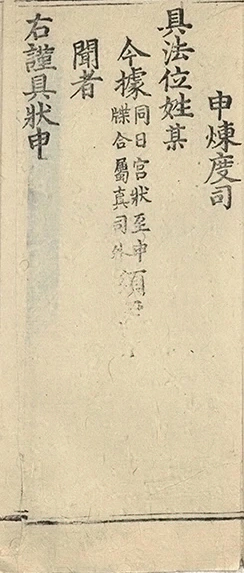 申煉度司
具法位姓某
今據同日宫狀至申牒合屬真司外須
聞者
右謹具狀申